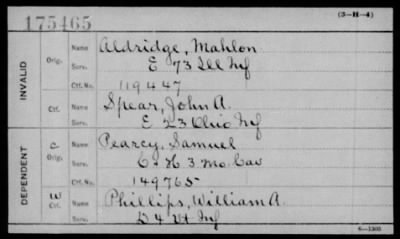 175465
(3-H-4)
INVALID
Orig.
Name Aldridge, Mahlon
Serv. E 73 Ill Inf
Ctf. No. 119447
Ctf.
Name Spear, John A.
Serv. E 23 Ohio Inf
DEPENDENT
C
Orig.
Name Pearcy, Samuel
Serv. C. H 3 Mo Cav
Ctf. No. 149765
W
Ctf.
Name Phillips, William A.
Serv. D 4 Vt Inf
6-1303